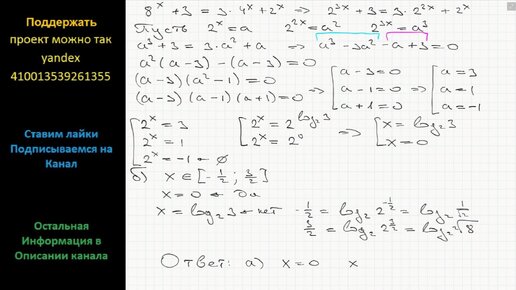 Поддержать
проект можно так
yandex
410013539261355
Ставим лайки
Подписываемся на
Канал
Остальная
Информация в
Описании канала
8^x + 3 = 3 · 4^x + 2^x => 2^{3x} + 3 = 3 · 2^{2x} + 2^x
Пусть 2^x = a 2^{2x} = a² 2^{3x} = a³
a³ + 3 = 3 · a² + a => a³ - 3a² - a + 3 = 0
a²(a - 3) - (a - 3) = 0
(a - 3)(a² - 1) = 0
(a - 3)(a - 1)(a + 1) = 0 => [ a - 3 = 0 => [ a = 3
a - 1 = 0 a = 1
a + 1 = 0 a = -1
[ 2^x = 3 [ 2^x = 2^{log₂3} => [ x = log₂3
2^x = 1 2^x = 2^0 x = 0
2^x = -1 ← ∅
б) x ∈ [-1/2; 3/2]
x = 0 ← Да
x = log₂3 ← нет -1/2 = log₂ 2^{-1/2} = log₂ 1/√2
3/2 = log₂ 2^{3/2} = log₂ √8
Ответ: а) x = 0 x